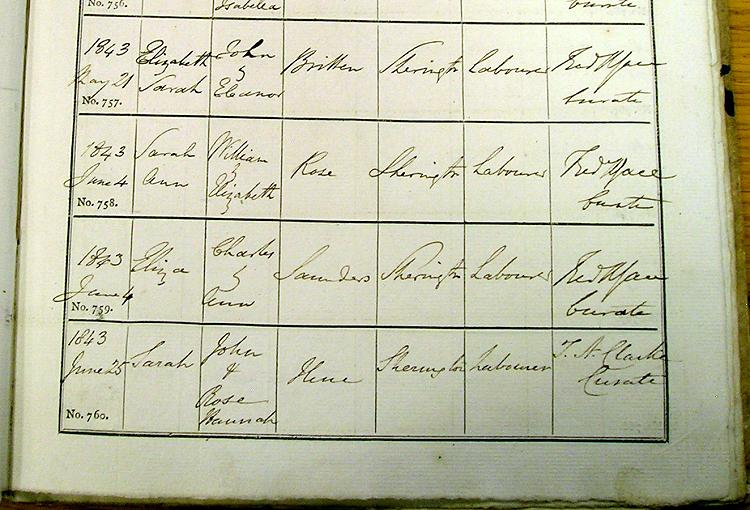 No. 756.
Isabella
Curate
1843
May 21
No. 757.
Elizabeth
Sarah
John
&
Eleanor
Britten
Sherington
Labourer
Curate
1843
June 4
No. 758.
Sarah
Ann
William
&
Elizabeth
Rose
Sherington
Labourer
Curate
1843
June 4
No. 759.
Eliza
Charles
&
Ann
Saunders
Sherington
Labourer
Curate
1843
June 25
No. 760.
Sarah
John
&
Rose
Hannah
Sherington
Labourer
T. A. Clarke
Curate